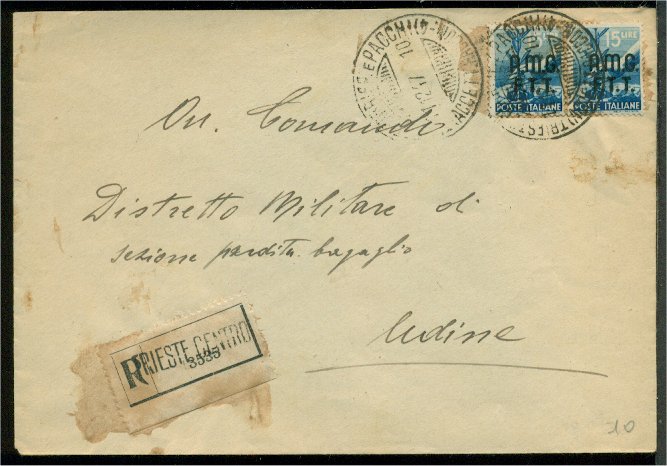 15 LIRE
A.M.G. A.M.G.
F.T.T. F.T.T.
POSTE ITALIANE POSTE ITALIANE
On. Comando
Distretto Militare di
sezione perdita bagaglio
Udine
R TRIESTE CENTRO
3535
10